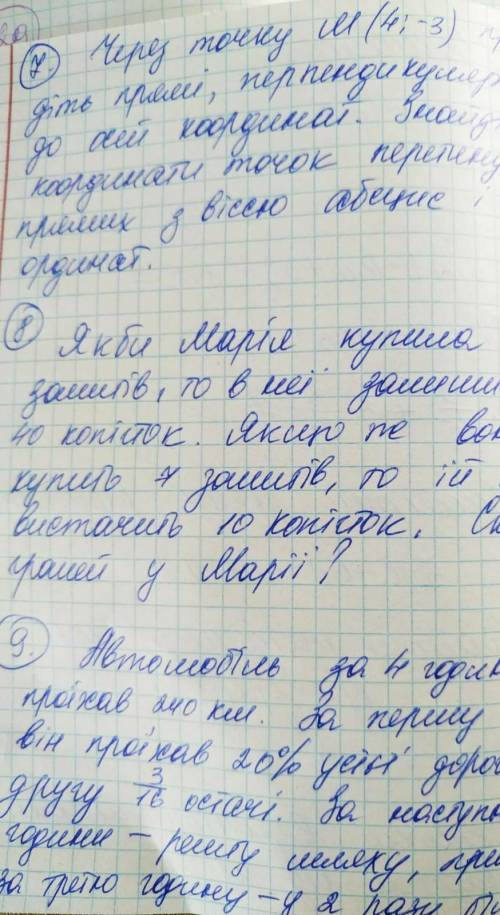 7. Через точку М (4; -3)
діть прямі,
до осей координат.
координати точок
прямих з віссю абсцис і
ординат.
8 Якби Марія купила
зошитів, то в неї
40 копійок. Якщо же
купить 7 зошитів, то їй
вистачить 10 копійок.
грошей у Марії?
9. Автомобіль за 4
проїхав 240 км. За першу
він проїхав 20% усієї
другу 3/16 остачі. За
години – решту шляху,
за третю годину – у 2 рази